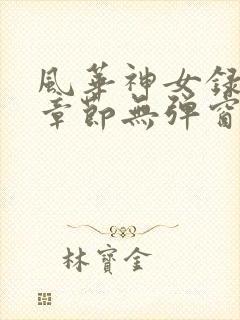 風華神女錄
章節無彈窗
林寶金